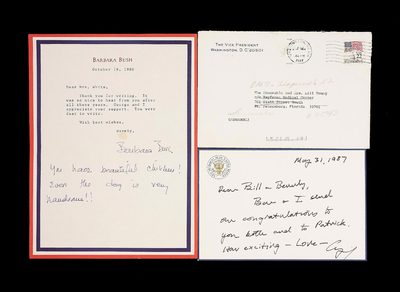 BARBARA BUSH
October 19, 1986
Dear Mrs. White,
Thank you for writing. It
was so nice to hear from you after
all these years. George and I
appreciate your support. You were
dear to write.
With best wishes,
Barbara Bush
You have beautiful children!
Even the dog is very
handsome!!
THE VICE PRESIDENT
WASHINGTON, D.C. 20501
The Honorable and Mrs. Bill Young
Bayfront Medical Center
St. Petersburg, Florida
May 31, 1987
Dear Bill & Beverly,
Bar & I send
our congratulations to
you both and to Patrick.
How exciting — Love —